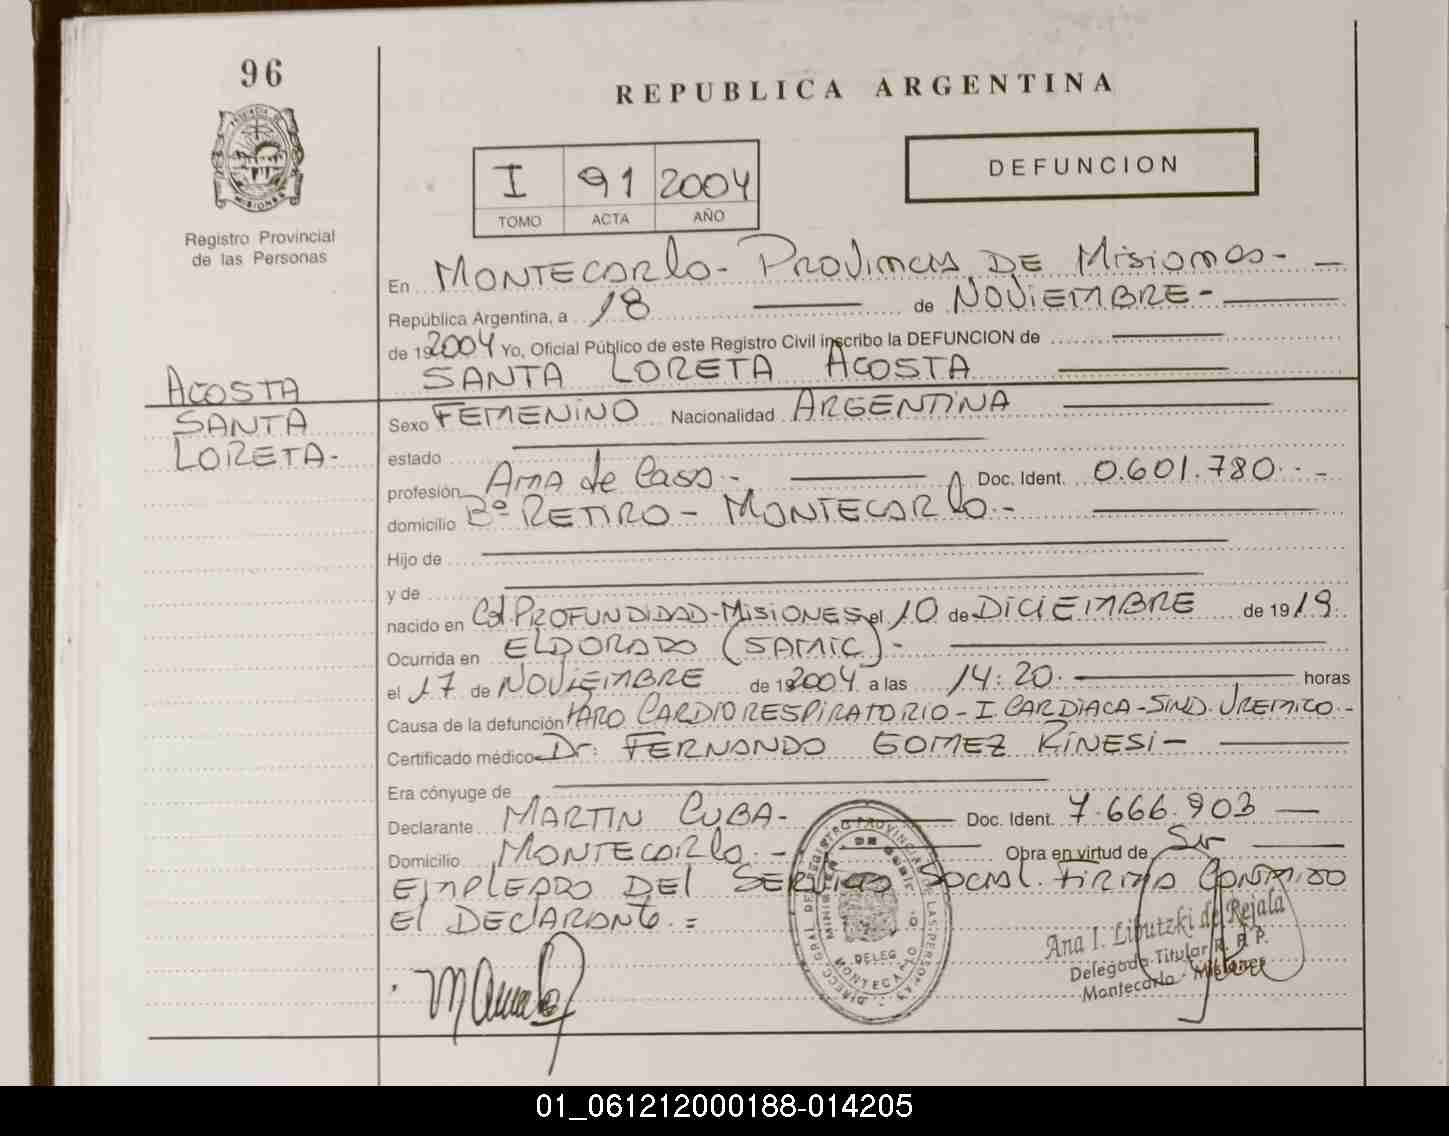 96
REPUBLICA ARGENTINA
I 91 2004
TOMO ACTA AÑO
DEFUNCION
PROVINCIA DE
MISIONES
Registro Provincial
de las Personas
En MONTECARLO - PROVINCIA DE MISIONES -
República Argentina, a 18 de NOVIEMBRE -
de 192004 Yo, Oficial Público de este Registro Civil inscribo la DEFUNCION de
SANTA LORETA ACOSTA
ACOSTA
SANTA
LORETA -
Sexo FEMENINO Nacionalidad ARGENTINA
estado
profesión AMA de CASA - Doc. Ident. 0.601.780 -
domicilio Bº RETIRO - MONTECARLO -
Hijo de
y de
nacido en Col. PROFUNDIDAD - MISIONES el 10 de DICIEMBRE de 1919
Ocurrida en ELDORADO (SAMIC) -
el 17 de NOVIEMBRE de 192004 a las 14:20 horas
Causa de la defunción PARO CARDIORESPIRATORIO - I. CARDIACA - SIND. UREMICO -
Certificado médico Dr: FERNANDO GOMEZ RINESI -
Era cónyuge de
Declarante MARTIN CUBA - Doc. Ident. 7.666.903
Domicilio MONTECARLO - Obra en virtud de Ser
EMPLEADO DEL SERVICIO SOCIAL. FIRMA CONMIGO
El DECLARANTE. =
DIRECC. GRAL. DEL REGISTRO PROVINCIAL DE LAS PERSONAS
MINISTERIO DE GOBIERNO
DELEG.
MONTECARLO
Ana I. Libutzki de Rejala
Delegada Titular R. P. P.
Montecarlo - Misiones
01_061212000188-014205